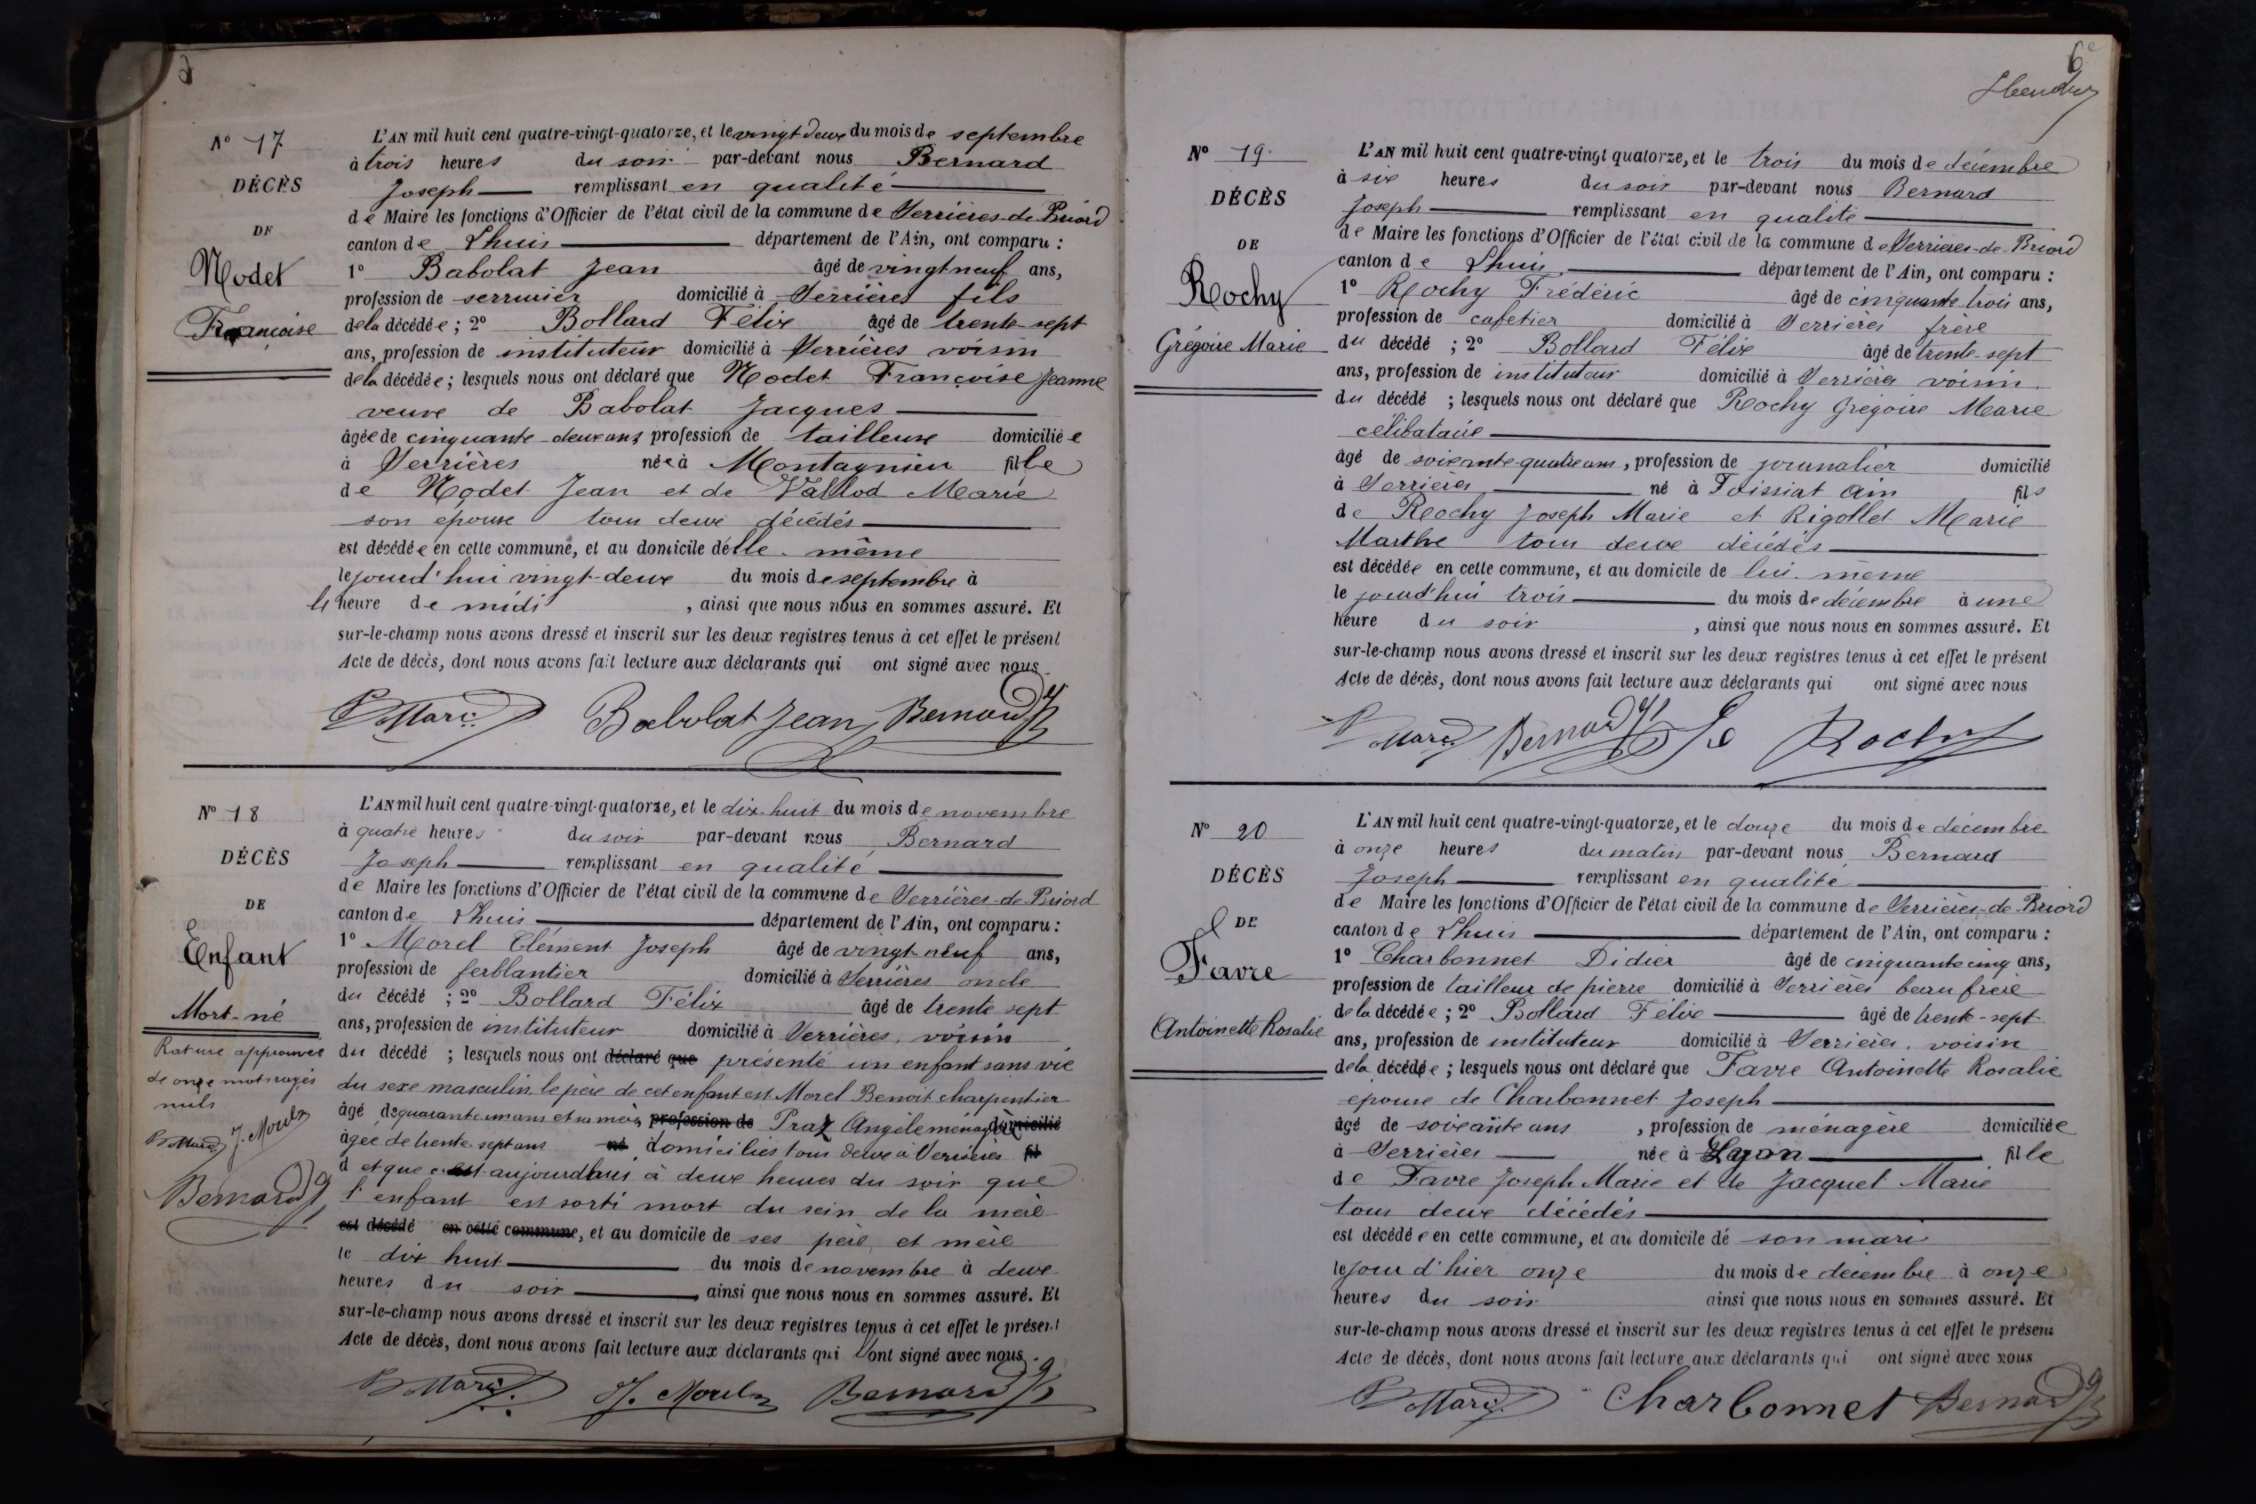 N° 17
DÉCÈS
DE
Nodet
Françoise
L'AN mil huit cent quatre-vingt-quatorze, et le vingt deux du mois de septembre
à trois heures du soir par-devant nous Bernard
Joseph remplissant en qualité
de Maire les fonctions d'Officier de l'état civil de la commune de Serrières-de-Briord
canton de Lhuis département de l'Ain, ont comparu :
1° Babolat Jean âgé de vingt neuf ans,
profession de serrurier domicilié à Serrières fils
de la décédée ; 2° Bollard Félix âgé de trente-sept
ans, profession de instituteur domicilié à Serrières voisin
de la décédée ; lesquels nous ont déclaré que Nodet Françoise Jeanne
veuve de Babolat Jacques
âgée de cinquante-deux ans profession de tailleuse domiciliée
à Serrières née à Montagnieu fille
de Nodet Jean et de Vallod Marie
son épouse tous deux décédés
est décédée en cette commune, et au domicile d'elle-même
le jourd'hui vingt-deux du mois de septembre à
heure de midi , ainsi que nous nous en sommes assuré. Et
sur-le-champ nous avons dressé et inscrit sur les deux registres tenus à cet effet le présent
Acte de décès, dont nous avons fait lecture aux déclarants qui ont signé avec nous
Babolat Jean Bernard
N° 18
DÉCÈS
DE
Enfant
Mort-né
Rature approuvée
de onze mots rayés
nuls
J. Morel
Bernard
L'AN mil huit cent quatre-vingt-quatorze, et le dix-huit du mois de novembre
à quatre heures du soir par-devant nous Bernard
Joseph remplissant en qualité
de Maire les fonctions d'Officier de l'état civil de la commune de Serrières-de-Briord
canton de Lhuis département de l'Ain, ont comparu :
1° Morel Clément Joseph âgé de vingt-neuf ans,
profession de ferblantier domicilié à Serrières oncle
du décédé ; 2° Bollard Félix âgé de trente sept
ans, profession de instituteur domicilié à Serrières, voisin
du décédé ; lesquels nous ont déclaré que présenté un enfant sans vie
du sexe masculin le père de cet enfant est Morel Benoit charpentier
âgé de quarante un ans et sa mère profession de Praz Angèle ménagère domicilié
âgée de trente-sept ans né domiciliés tous deux à Serrières fil
d et que c'est aujourd'hui à deux heures du soir que
l'enfant est sorti mort du sein de la mère
est décédé en cette commune, et au domicile de ses père et mère
le dix huit du mois de novembre à deux
heures du soir ainsi que nous nous en sommes assuré. Et
sur-le-champ nous avons dressé et inscrit sur les deux registres tenus à cet effet le présent
Acte de décès, dont nous avons fait lecture aux déclarants qui ont signé avec nous
J. Morel Bernard
6e
N° 19
DÉCÈS
DE
Rochy
Grégoire Marie
L'AN mil huit cent quatre-vingt quatorze, et le trois du mois de décembre
à six heures du soir par-devant nous Bernard
Joseph remplissant en qualité
de Maire les fonctions d'Officier de l'état civil de la commune de Serrières-de-Briord
canton de Lhuis département de l'Ain, ont comparu :
1° Rochy Frédéric âgé de cinquante trois ans,
profession de cafetier domicilié à Serrières frère
du décédé ; 2° Bollard Félix âgé de trente-sept
ans, profession de instituteur domicilié à Serrières voisin
du décédé ; lesquels nous ont déclaré que Rochy Grégoire Marie
célibataire
âgé de soixante quatre ans, profession de journalier domicilié
à Serrières né à Foissiat Ain fils
de Rochy Joseph Marie et Rigollet Marie
Marthe tous deux décédés
est décédée en cette commune, et au domicile de lui-même
le jourd'hui trois du mois de décembre à une
heure du soir , ainsi que nous nous en sommes assuré. Et
sur-le-champ nous avons dressé et inscrit sur les deux registres tenus à cet effet le présent
Acte de décès, dont nous avons fait lecture aux déclarants qui ont signé avec nous
Bernard Rochy
N° 20
DÉCÈS
DE
Favre
Antoinette Rosalie
L'AN mil huit cent quatre-vingt-quatorze, et le douze du mois de décembre
à onze heures du matin par-devant nous Bernard
Joseph remplissant en qualité
de Maire les fonctions d'Officier de l'état civil de la commune de Serrières-de-Briord
canton de Lhuis département de l'Ain, ont comparu :
1° Charbonnet Didier âgé de cinquante cinq ans,
profession de tailleur de pierre domicilié à Serrières beau frère
de la décédée ; 2° Bollard Félix âgé de trente-sept
ans, profession de instituteur domicilié à Serrières, voisin
de la décédée ; lesquels nous ont déclaré que Favre Antoinette Rosalie
épouse de Charbonnet Joseph
âgé de soixante ans , profession de ménagère domiciliée
à Serrières née à Lyon fille
de Favre Joseph Marie et de Jacquet Marie
tous deux décédés
est décédée en cette commune, et au domicile de son mari
le jour d'hier onze du mois de décembre à onze
heures du soir ainsi que nous nous en sommes assuré. Et
sur-le-champ nous avons dressé et inscrit sur les deux registres tenus à cet effet le présent
Acte de décès, dont nous avons fait lecture aux déclarants qui ont signé avec nous
Charbonnet Bernard